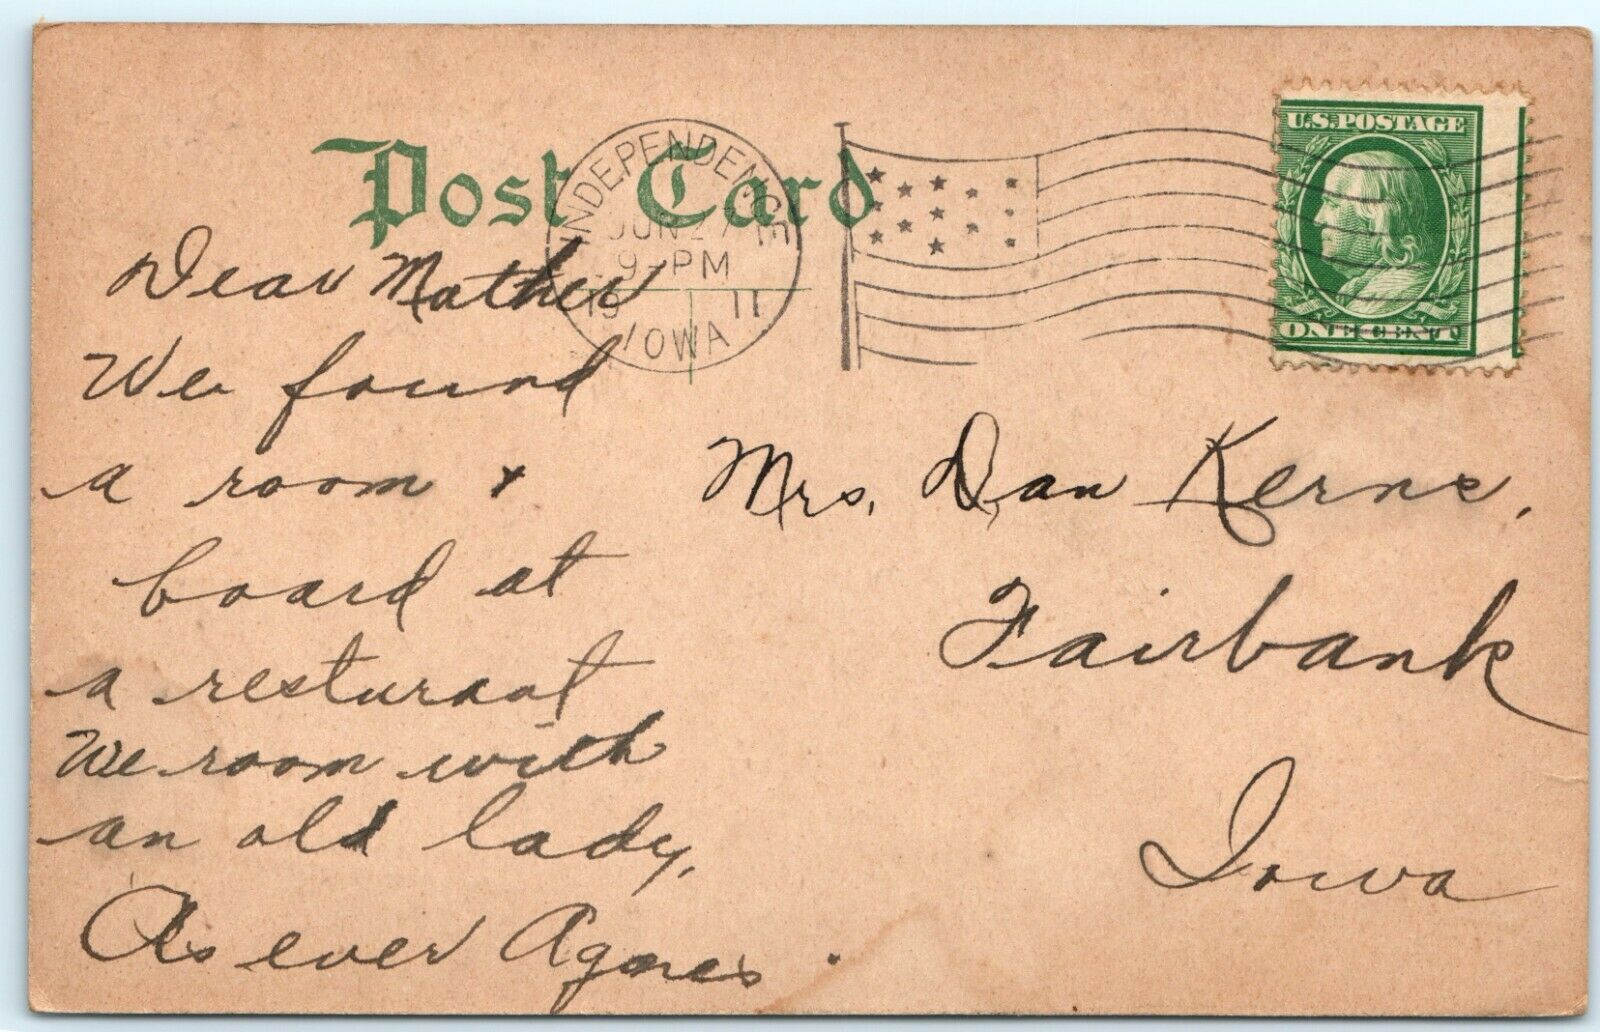 Post Card
INDEPENDENCE
JUN 27
9-PM
1911
IOWA
U.S. POSTAGE
ONE CENT
Dear Mother
We found
a room +
board at
a resturant
We room with
an old lady,
As ever Agnes.
Mrs. Dan Kerns,
Fairbank
Iowa